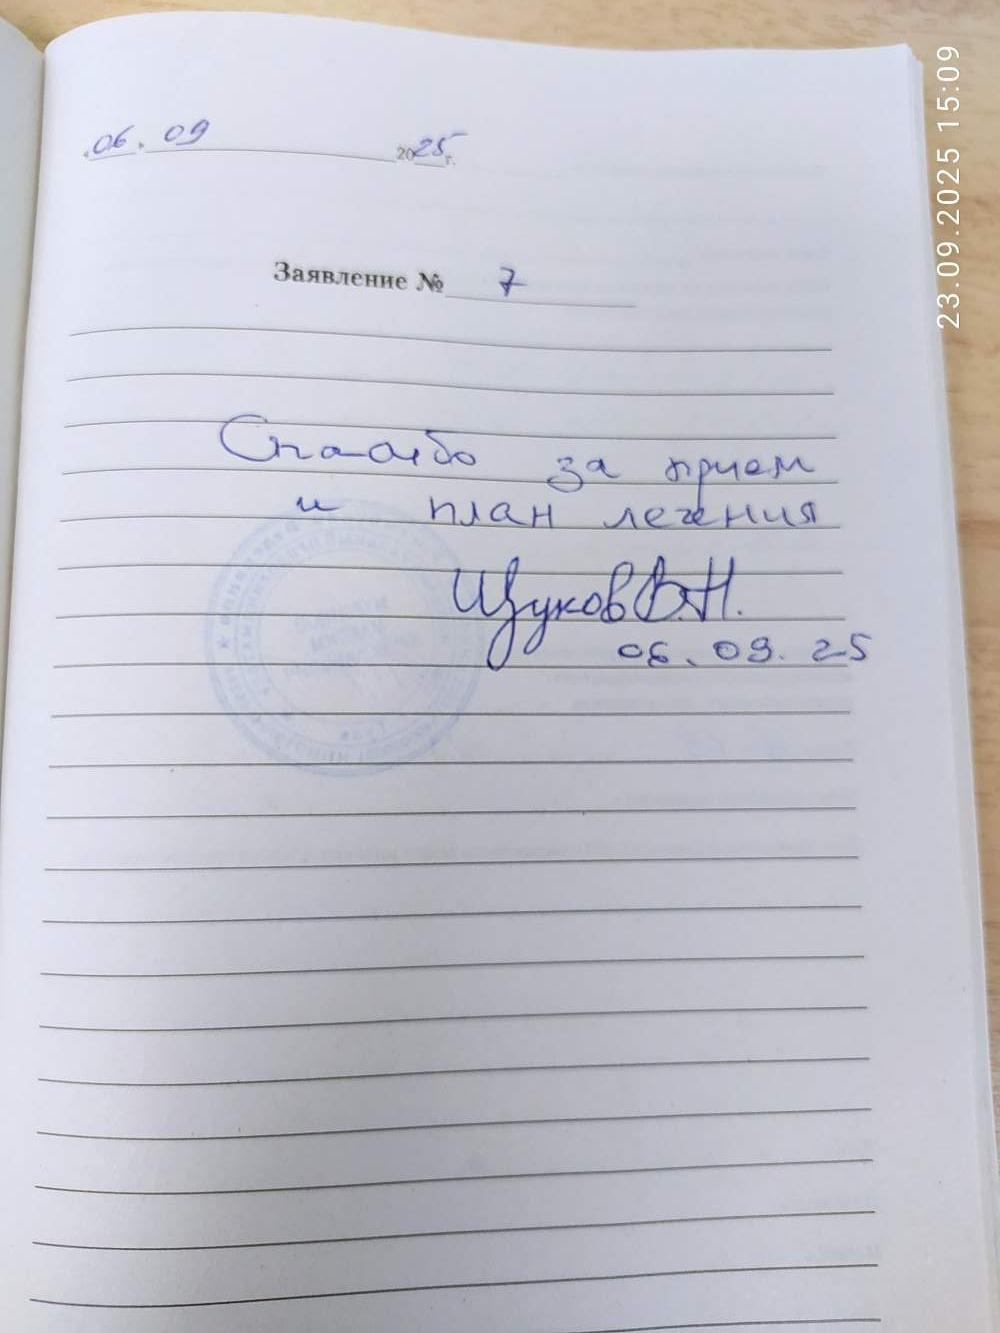 «06» 09 2025 г.
23.09.2025 15:09
Заявление № 7
Спасибо за прием
и план лечения
Щуков В.Н.
06.09.25